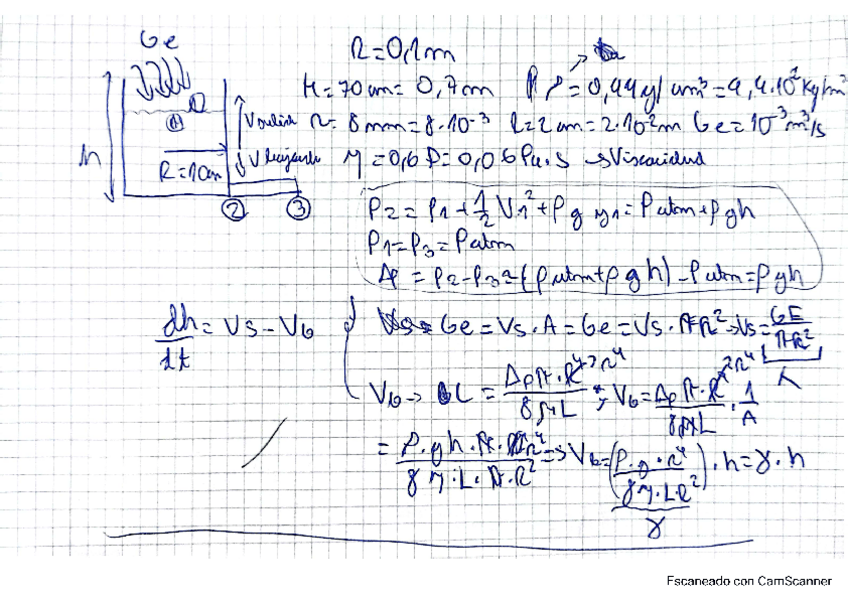 Ge
R=0,1m
H=70cm=0,7cm ρ=0,94g/cm³=9,4·10²kg/m³
h ① Vsubida r=8mm=8·10⁻³ L=2cm=2·10⁻²m Ge=10⁻³m³/s
R=10cm Vbajante η=0,6P=0,06Pa.s →Viscosidad
② ③
P2=P1+½V1²+ρg y1=Patm+ρgh
P1=P3=Patm
Δp=P2-P3=(patm+ρgh)-Patm=ρgh
dh/dt=Vs-Vb
Ge=Vs·A=Ge=Vs·πR²→Vs=GE/πR²
λ
Vb→ C=Δpπ·r⁴/8ηL ; Vb=Δpπ·r⁴/8ηL·1/A
=ρ·gh·π·r⁴/8η·L·π·R²→Vb=(ρ·g·r⁴/8η·LR²)·h=γ·h
γ
Escaneado con CamScanner